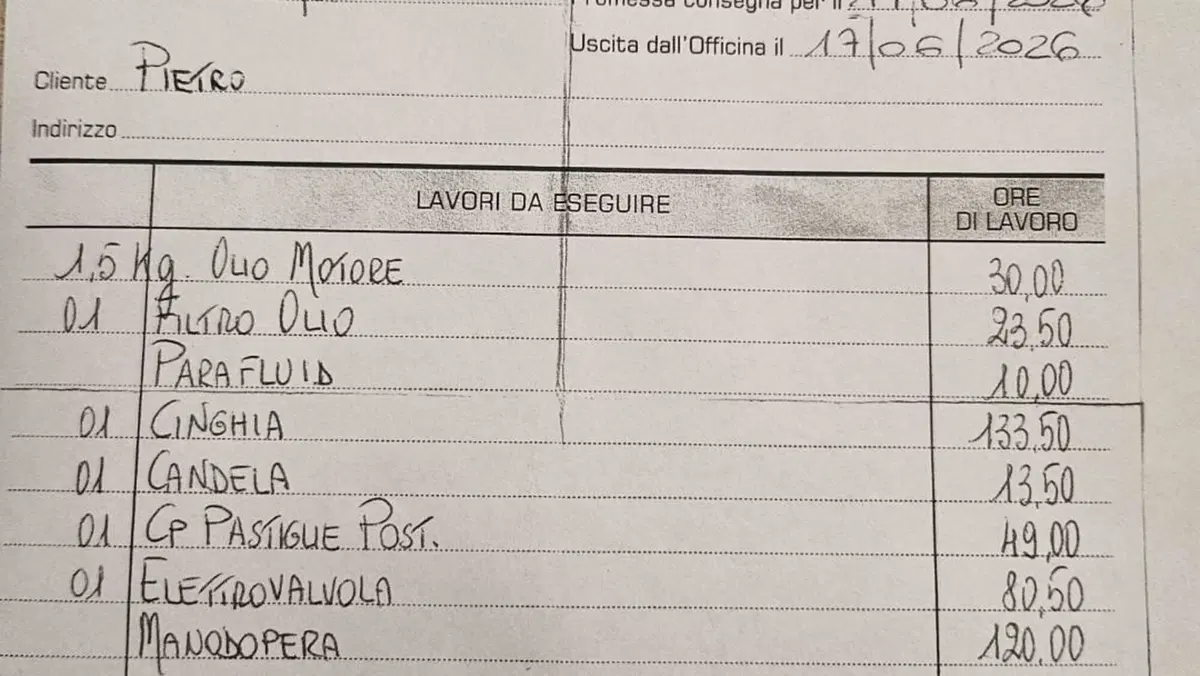 Promessa consegna per il
Uscita dall'Officina il 17/06/2026
Cliente PIETRO
Indirizzo
LAVORI DA ESEGUIRE ORE DI LAVORO
1,5 Kg. OLIO MOTORE 30,00
01 FILTRO OLIO 23,50
PARAFLUID 10,00
01 CINGHIA 133,50
01 CANDELA 13,50
01 CP PASTIGLIE POST. 49,00
01 ELETTROVALVOLA 80,50
MANODOPERA 120,00